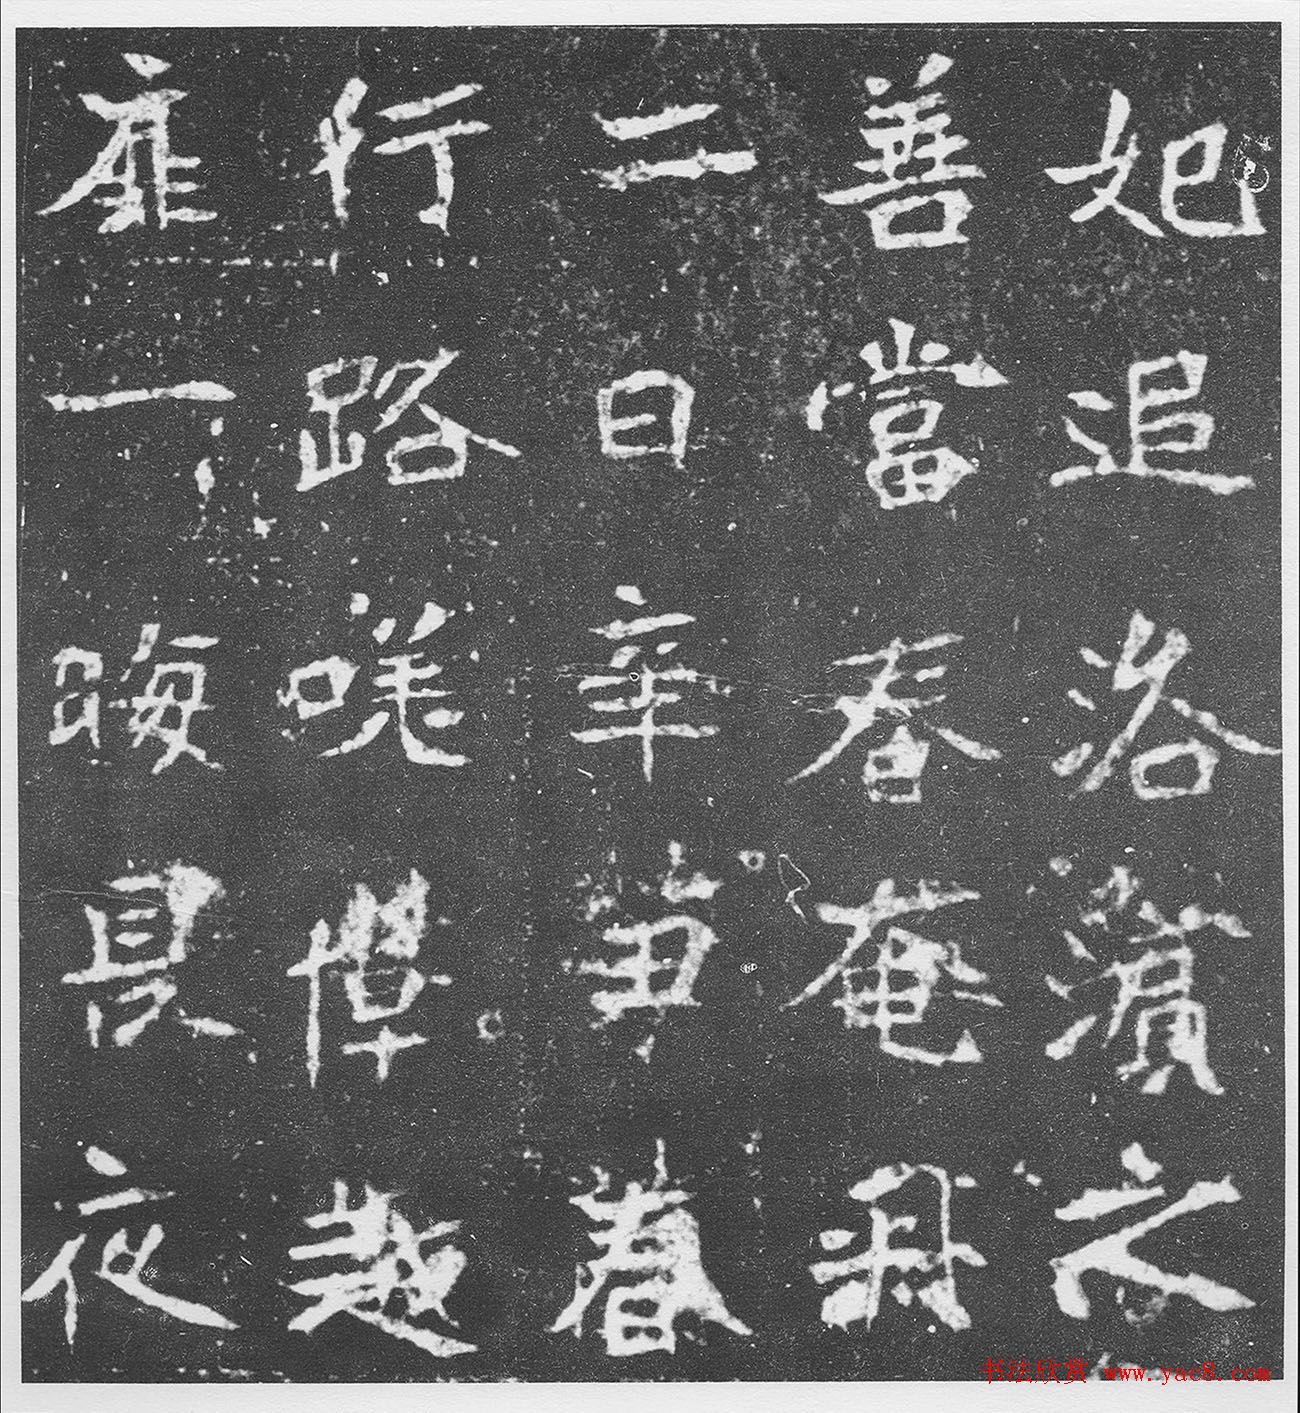 妃追洛濱之
善當春奄
二日辛丑
行路悼
扉一晦夜
书法欣赏 www.yac8.com